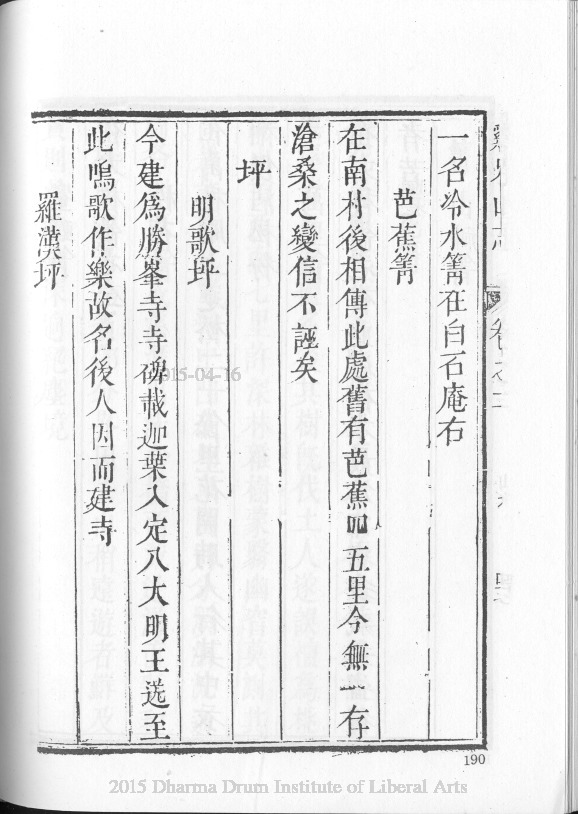 一名冷水箐在白石庵右
芭蕉箐
在南村後相傳此處舊有芭蕉四五里今無一存
滄桑之變信不誣矣
坪
明歌坪
今建爲勝峯寺寺碑載迦葉入定八大明王迭至
此鳴歌作樂故名後人因而建寺
羅漢坪
190
2015-04-16
2015 Dharma Drum Institute of Liberal Arts